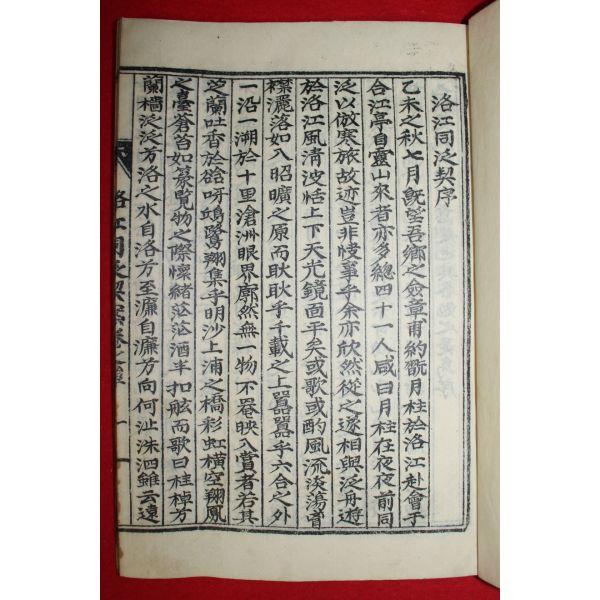 洛江同泛契序
乙未之秋七月旣望吾鄕之僉章甫約翫月柱於洛江赴會于
合江亭自靈山來者亦多總四十一人咸曰月柱在夜夜前同
泛以倣寒旅故迹豈非忮事乎余亦欣然從之遂相與泛舟遊
於洛江風淸波恬上下天光鏡面平矣或歌或酌風流淡蕩胷
襟灑落如入昭曠之原而耿耿乎千載之上囂囂乎六合之外
一沿一溯於十里滄洲眼界廓然無一物不罍映入賞者若其
芝蘭吐香於谽呀鴻鷺翔集乎明沙上浦之橋彩虹橫空翔鳳
之臺蒼苔如篆覽物之際懷緖茫茫酒半扣舷而歌曰桂棹兮
蘭檣泛泛兮洛之水自洛兮至濂自濂兮向何沚洙泗雖云遠
洛江同泛契案卷之單
一